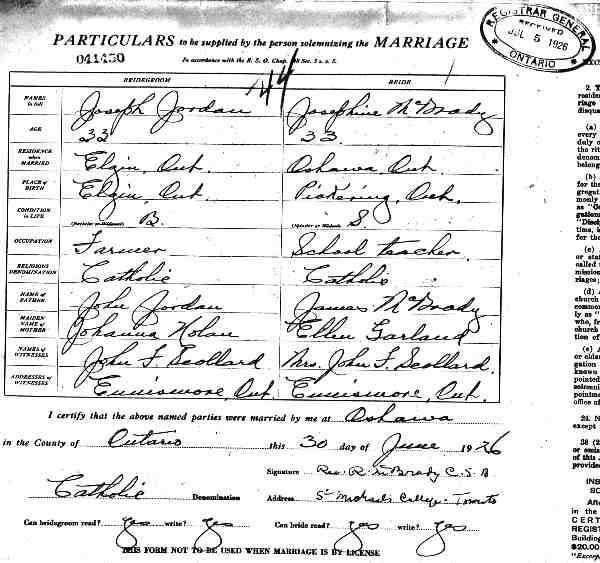 PARTICULARS to be supplied by the person solemnizing the MARRIAGE
041430
In accordance with the R. S. O. Chap. 138 Sec. 3 s. s.
44
REGISTRAR GENERAL
RECEIVED
JUL 5 1926
ONTARIO
BRIDEGROOM BRIDE
NAMES in full Joseph Jordan Josephine McBrady
AGE 33 33
RESIDENCE when MARRIED Elgin, Ont Oshawa Ont.
PLACE of BIRTH Elgin, Ont Pickering, Ont.
CONDITION in LIFE (Bachelor or Widower) B. (Spinster or Widow) S.
OCCUPATION Farmer School teacher
RELIGIOUS DENOMINATION Catholic Catholic
NAME OF FATHER John Jordan James McBrady
MAIDEN NAME OF MOTHER Johanna Nolan Ellen Garland
NAMES of WITNESSES John F. Scollard Mrs. John F. Scollard.
ADDRESSES of WITNESSES Ennismore, Ont Ennismore, Ont.
I certify that the above named parties were married by me at Oshawa
in the County of Ontario this 30 day of June 1926
Signature Rev. R. McBrady C.S.B
Catholic Denomination Address St Michaels College Toronto
Can bridegroom read? yes write? yes Can bride read? yes write? yes
THIS FORM NOT TO BE USED WHEN MARRIAGE IS BY LICENSE
2. T
residen
riage
disqua
(a)
every
duly o
the rit
denom
belong
(b)
for the
gregat
monly
as "Co
gations
"Discip
time, i
for the
(c)
or stat
called
mission
riages;
(d)
church
commo
ly as "
who, fr
church
tion of
(e)
or elder
gation
known
pointed
solemni
pointme
office of
24. N
except
38 (2
or emiss
of this
provided
INS
SO
An
in the
CERT
REGIST
Building
$20.00
"Excerp